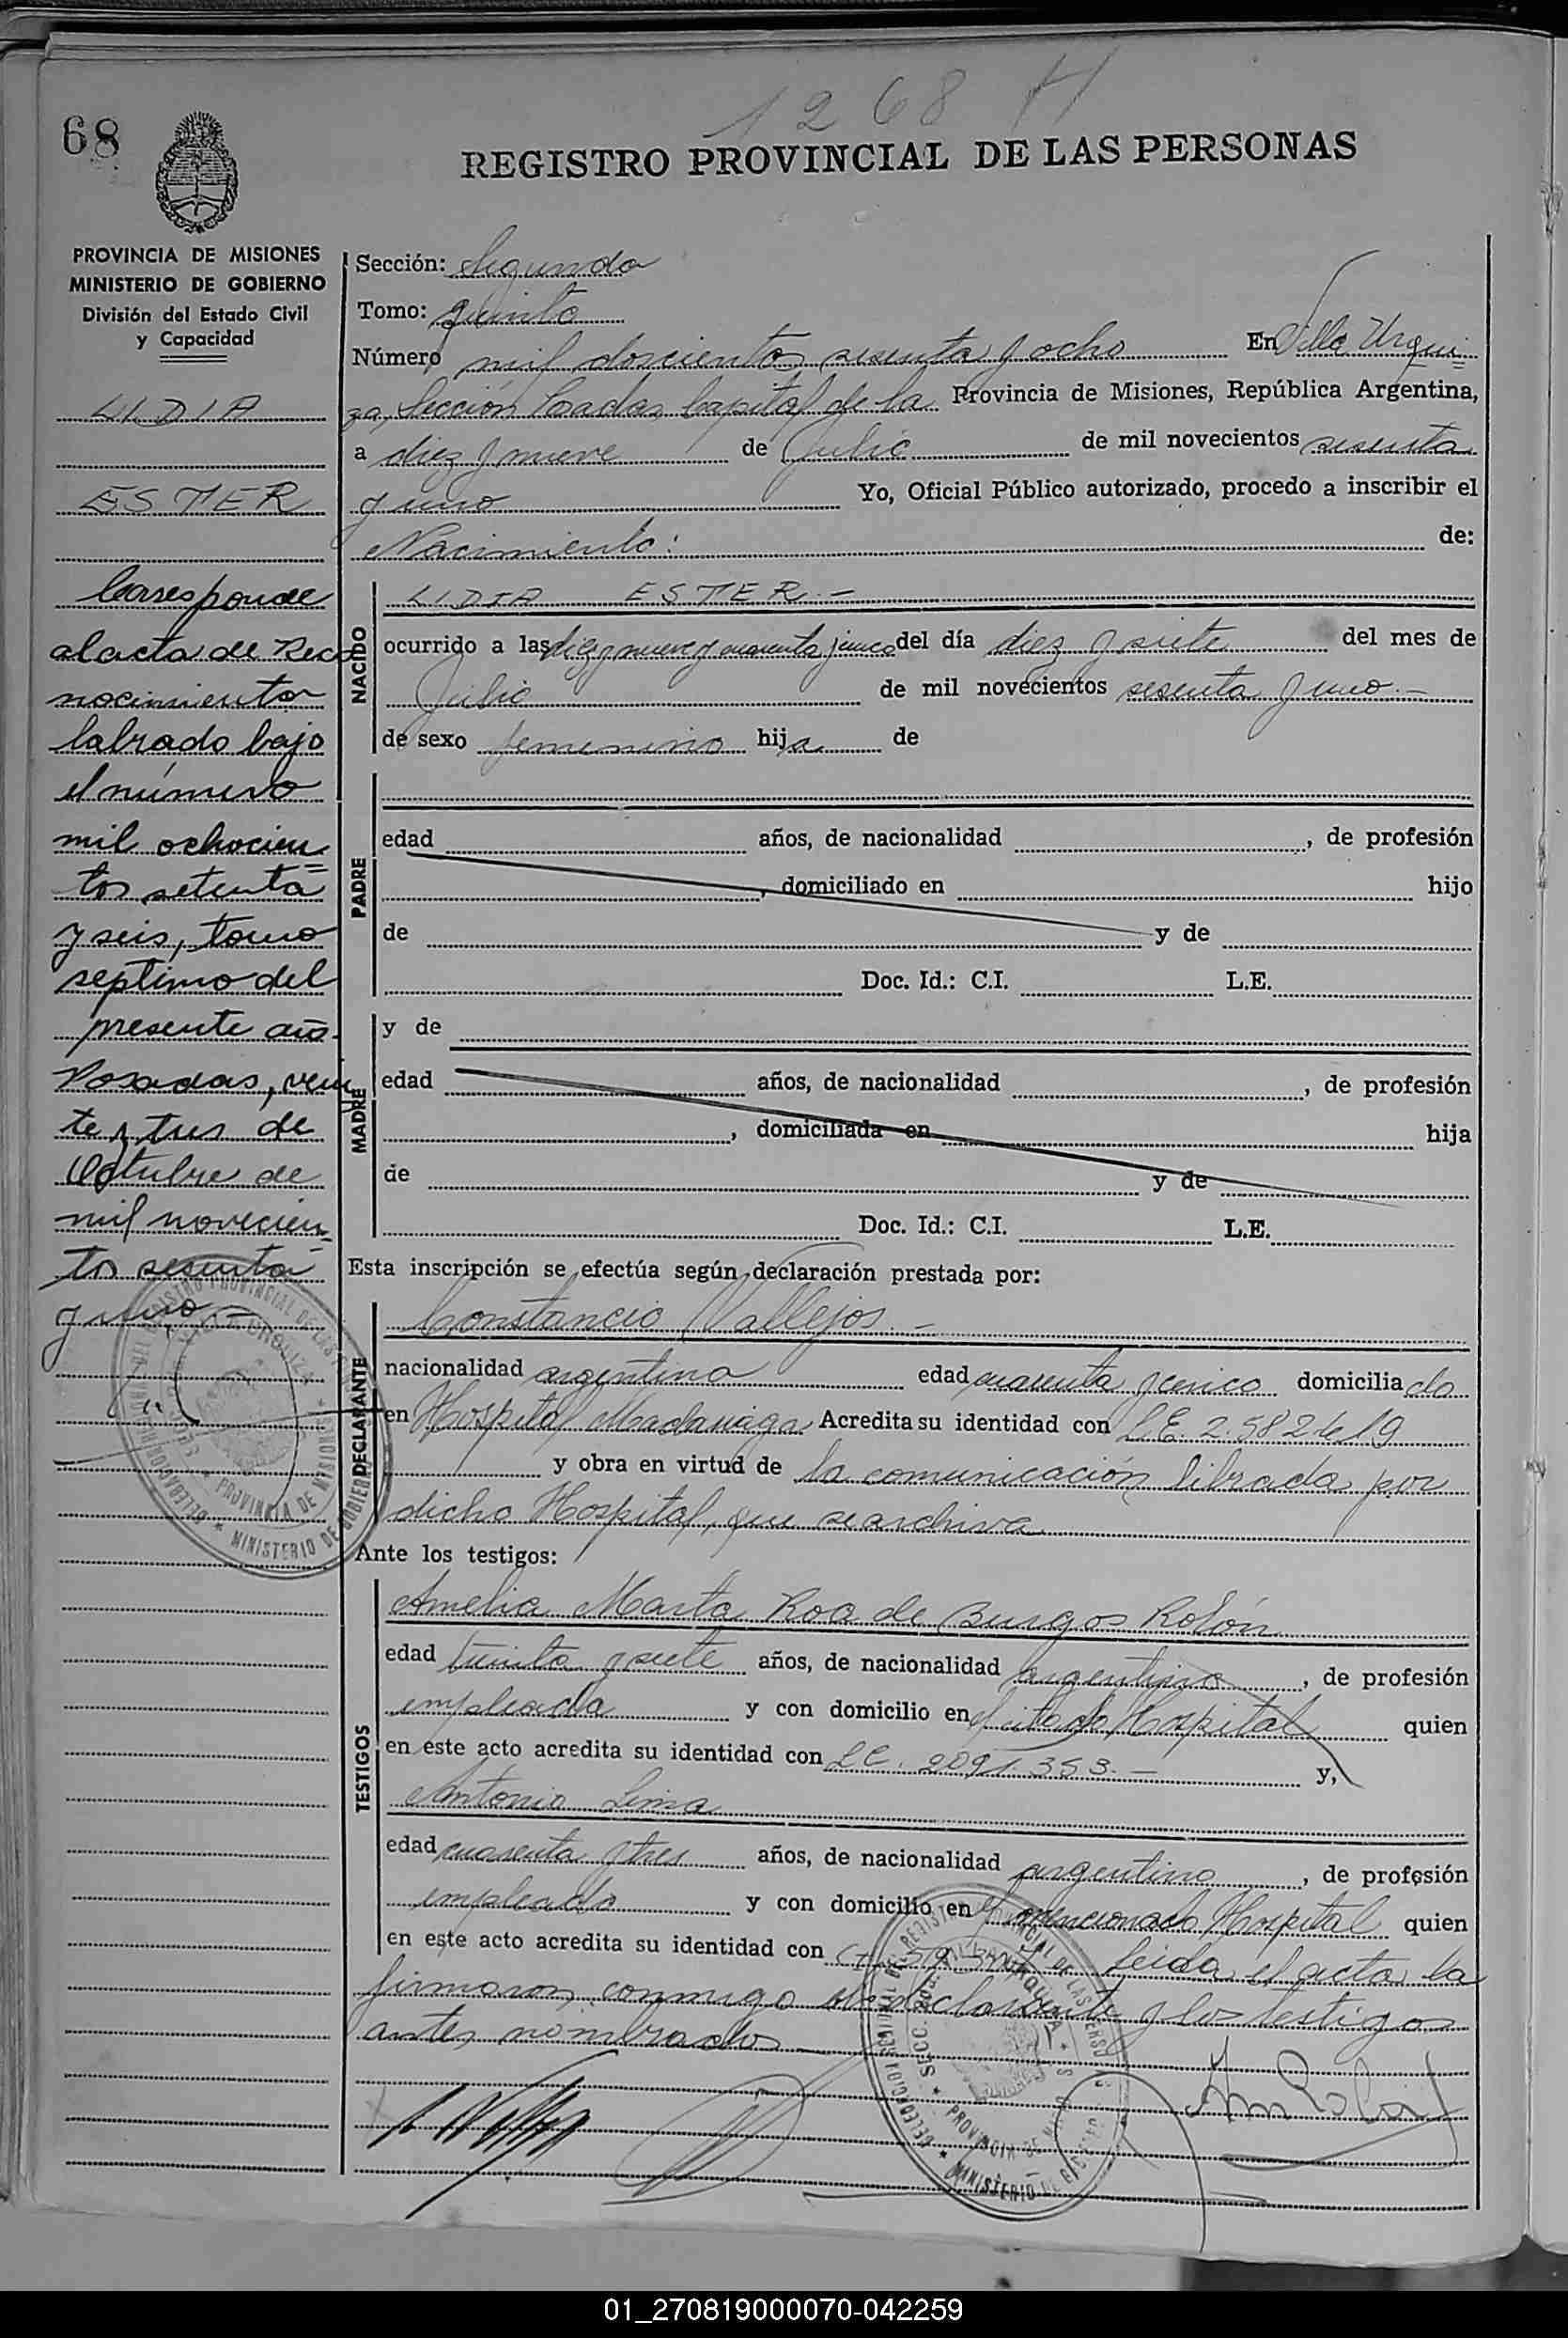 1268 H
68
REGISTRO PROVINCIAL DE LAS PERSONAS
PROVINCIA DE MISIONES
MINISTERIO DE GOBIERNO
División del Estado Civil
y Capacidad
LIDIA
ESTER
Corresponde
al acta de Reco
nocimiento
labrado bajo
el número
mil ochocien=
tos setenta
y seis, tomo
septimo del
presente año.
Posadas, vein
te y tres de
Octubre de
mil novecien=
tos sesenta
y uno.-
Sección: Segunda
Tomo: quinto
Número mil doscientos sesenta y ocho En Villa Urqui=
za, Sección Posadas, Capital de la Provincia de Misiones, República Argentina,
a diez y nueve de Julio de mil novecientos sesenta
y uno Yo, Oficial Público autorizado, procedo a inscribir el
Nacimiento: de:
NACIDO
LIDIA ESTER.-
ocurrido a las diez y nueve y cuarenta y cinco del día diez y siete del mes de
Julio de mil novecientos sesenta y uno.-
de sexo femenino hija de
PADRE
edad años, de nacionalidad , de profesión
, domiciliado en hijo
de y de
Doc. Id.: C.I. L.E.
MADRE
y de
edad años, de nacionalidad , de profesión
, domiciliada en hija
de y de
Doc. Id.: C.I. L.E.
Esta inscripción se efectúa según declaración prestada por:
DECLARANTE
Constancio Vallejos.-
nacionalidad argentina edad cuarenta y cinco domiciliado
en Hospital Madariaga Acredita su identidad con L.E. 2.582.619
y obra en virtud de la comunicación librada por
dicho Hospital, que se archiva
Ante los testigos:
TESTIGOS
Amelia Marta Roa de Burgos Rolón
edad treinta y siete años, de nacionalidad argentina, de profesión
empleada y con domicilio en el citado Hospital quien
en este acto acredita su identidad con L.C. 2091.353.- y,
Antonio Lima
edad cuarenta y tres años, de nacionalidad argentino, de profesión
empleado y con domicilio en el mencionado Hospital quien
en este acto acredita su identidad con Leida el acta la
firmaron conmigo el declarante y los testigos
antes nombrados
01_270819000070-042259